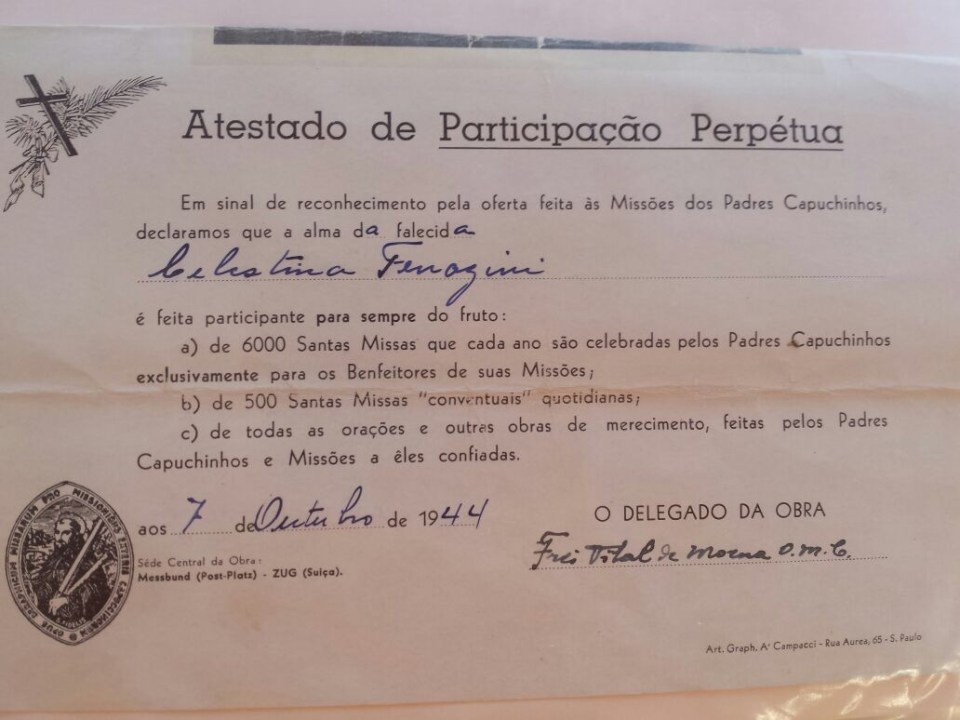 Atestado de Participação Perpétua
Em sinal de reconhecimento pela oferta feita às Missões dos Padres Capuchinhos,
declaramos que a alma da falecida
Celestina
é feita participante para sempre do fruto:
a) de 6000 Santas Missas que cada ano são celebradas pelos Padres Capuchinhos
exclusivamente para os Benfeitores de suas Missões;
b) de 500 Santas Missas "conventuais" quotidianas;
c) de todas as orações e outras obras de merecimento, feitas pelos Padres
Capuchinhos e Missões a êles confiadas.
aos 7 de Outubro de 1944
O DELEGADO DA OBRA
Frei Vital de Moena O.M.C.
Séde Central da Obra:
Messbund (Post-Platz) - ZUG (Suiça).
Art. Graph. Aº Campacci - Rua Aurea, 65 - S. Paulo